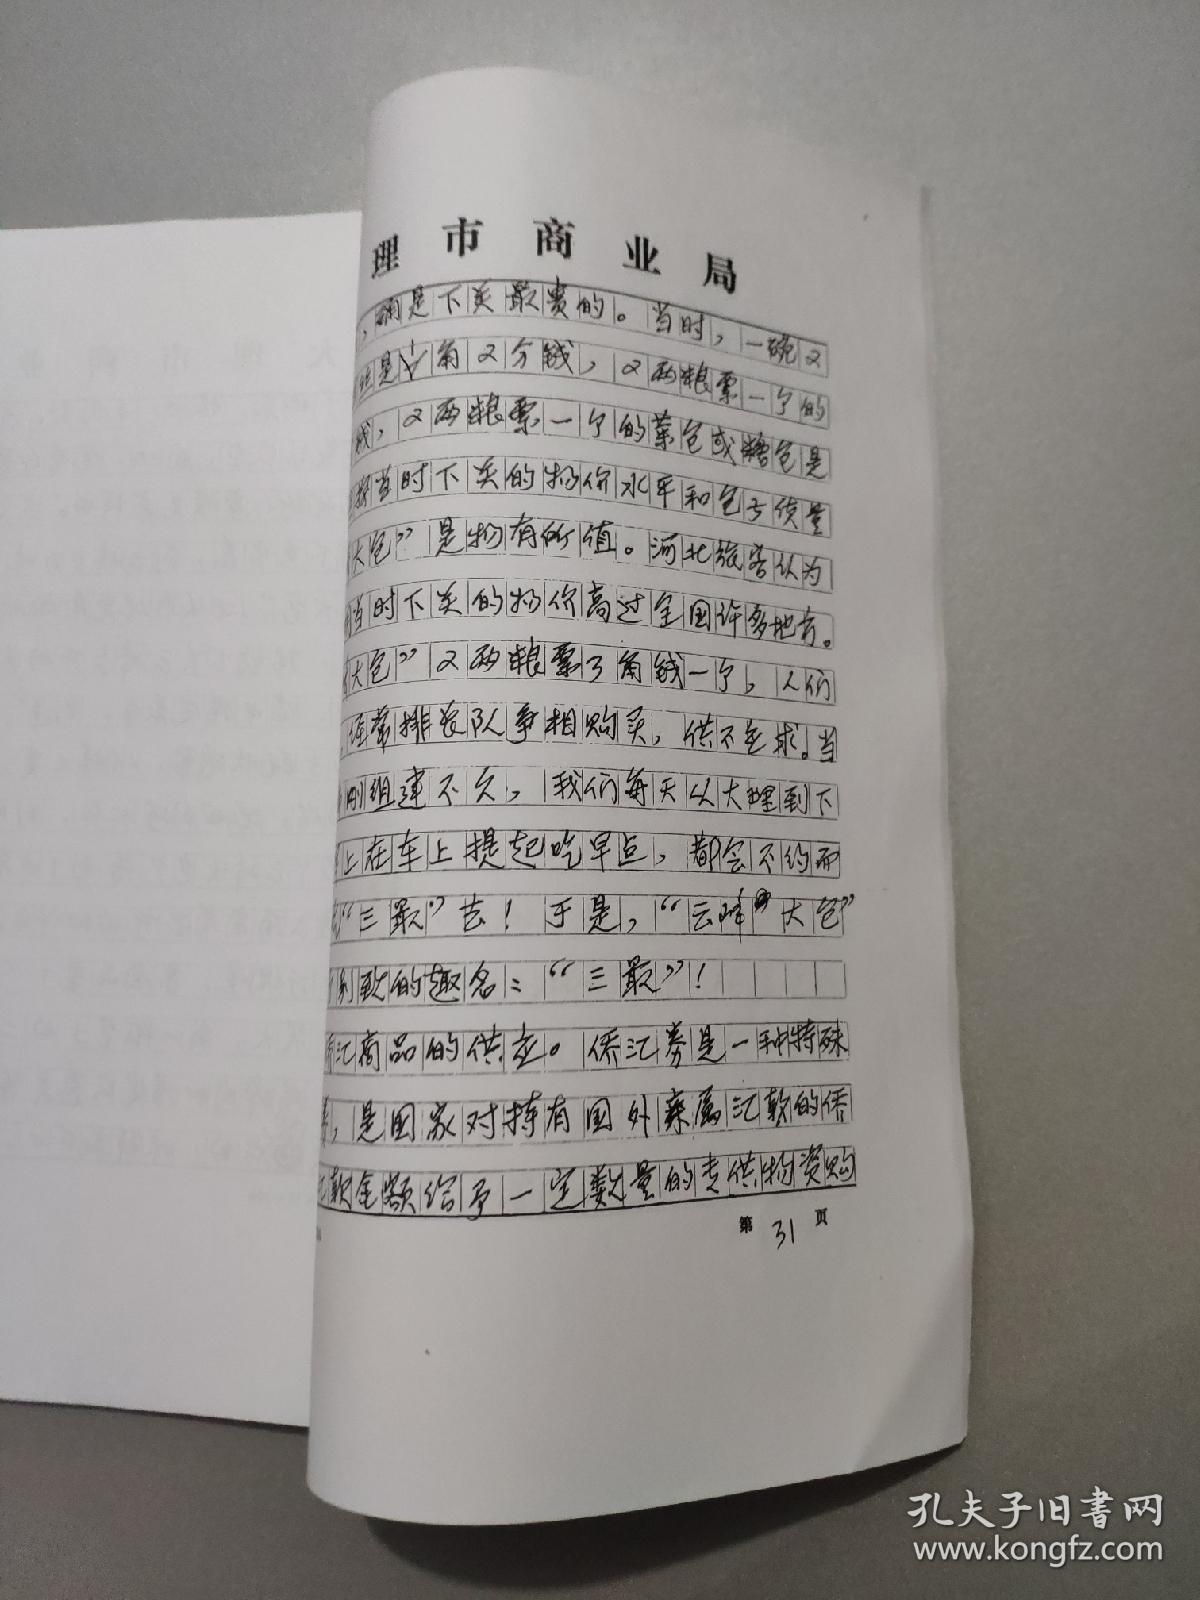 理市商业局
，确是下关最贵的。当时，一碗2
丝是1角2分钱，2两粮票一个的
钱，2两粮票一个的菜包或糖包是
当时下关的物价水平和包子质量
大包”是物有所值。河北旅客认为
当时下关的物价高过全国许多地方。
大包”2两粮票3角钱一个，人们
经常排长队争相购买，供不应求。当
刚组建不久，我们每天从大理到下
上在车上提起吃早点，都会不约而
“三最”去！于是，“云峰大包”
别致的趣名：“三最”！
汇商品的供应。侨汇券是一种特殊
，是国家对持有国外亲属汇款的侨
汇款金额给予一定数量的专供物资购
第31页
孔夫子旧书网
www.kongfz.com